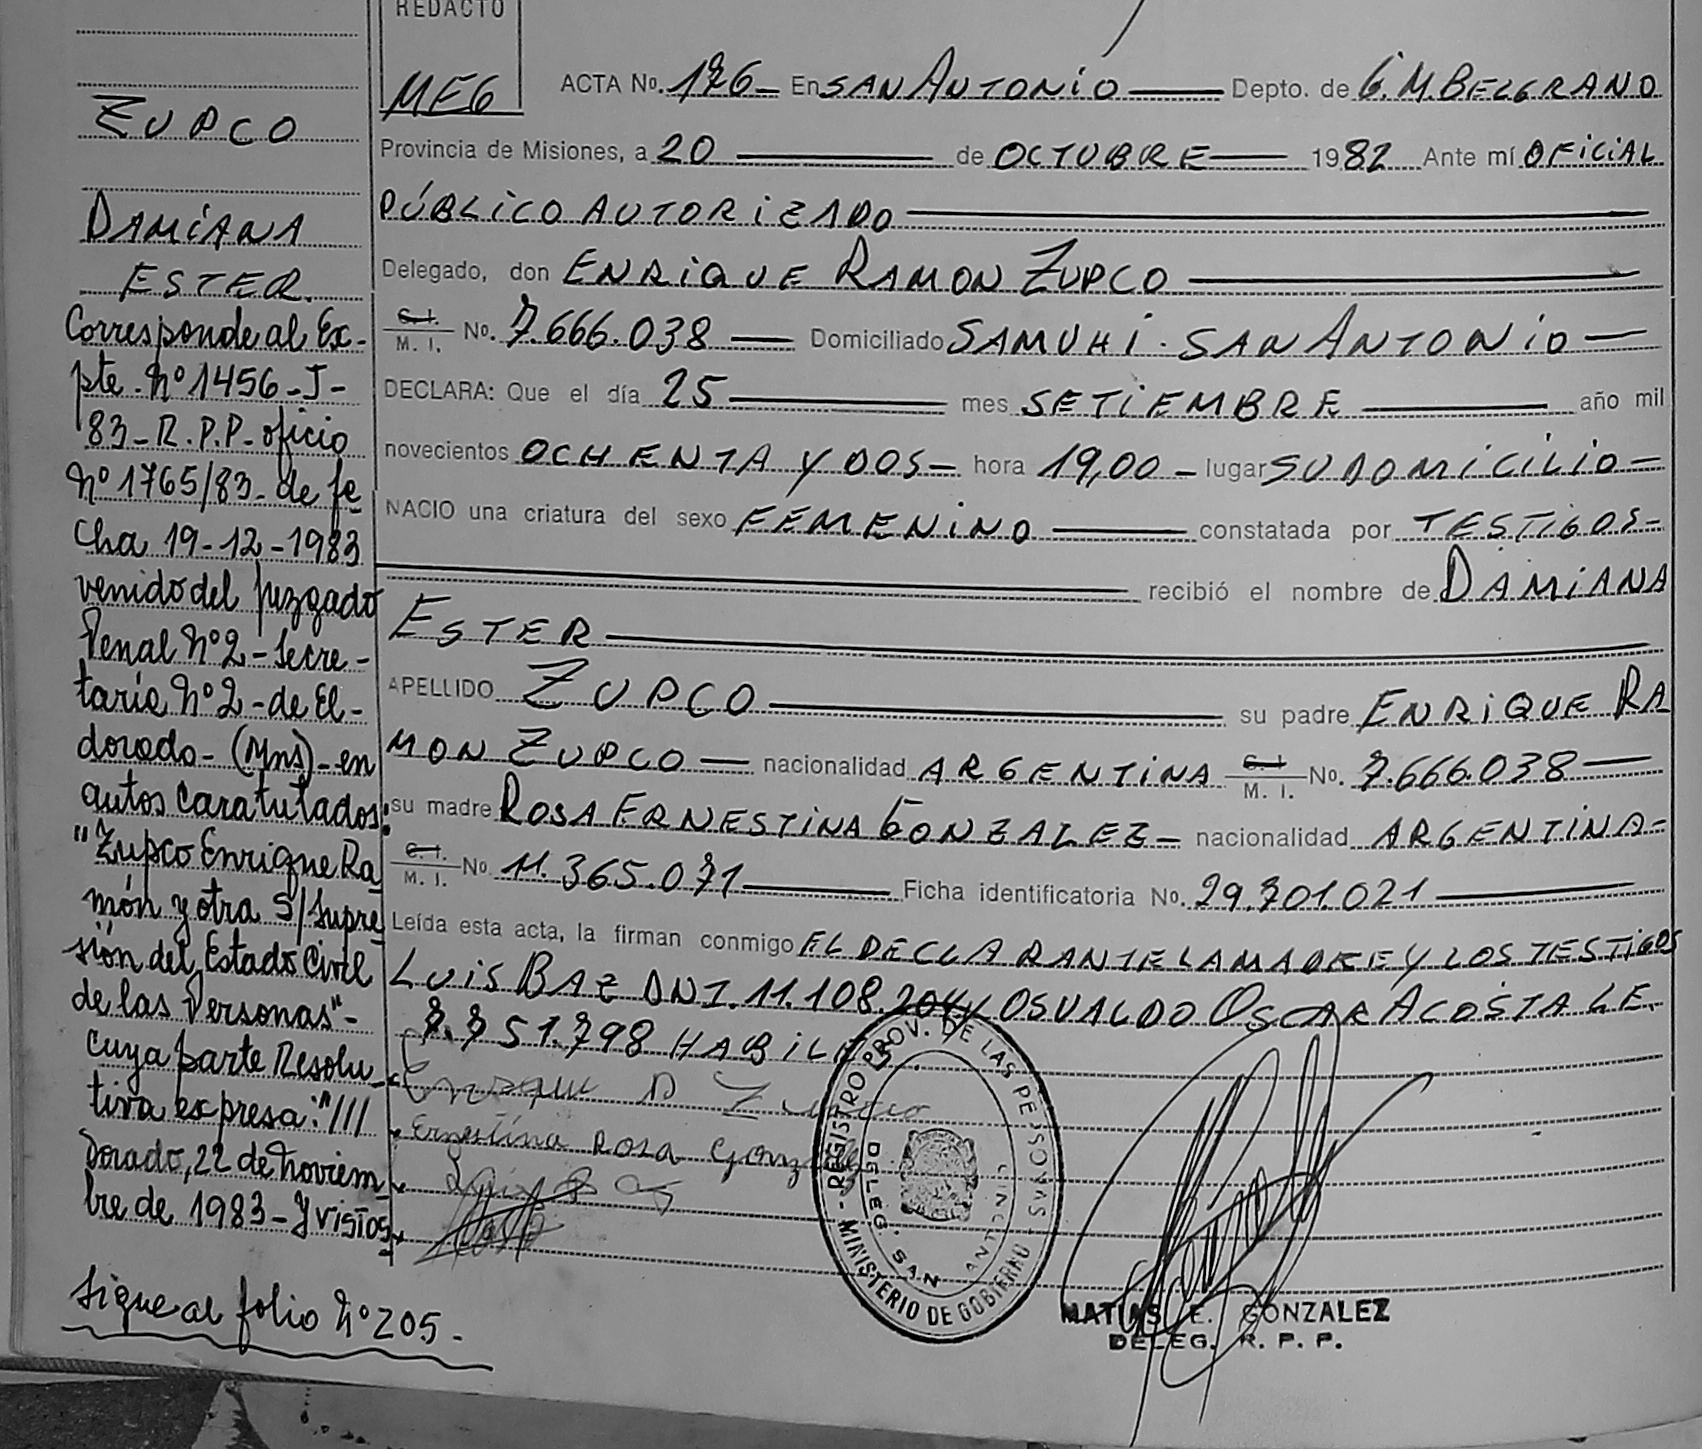 REDACTO
MEG
ZUPCO
DAMIANA
ESTER.
Corresponde al Ex-
pte. Nº 1456-J-
83-R.P.P. oficio
Nº 1765/83- de fe
cha 19-12-1983
venido del juzgado
Penal Nº 2-Secre-
taria Nº 2-de El-
dorado-(Mns)-en
autos caratulados:
"Zupco Enrique Ra
món y otra S/Supre
sión del Estado Civil
de las Personas"-
cuya parte Resolu-
tiva expresa: "///
dorado, 22 de Noviem
bre de 1983-Y vistos,
Sigue al folio Nº 205.-
ACTA No. 176- En SAN ANTONIO Depto. de G. M. BELGRANO
Provincia de Misiones, a 20 de OCTUBRE 1982 Ante mí OFICIAL
PÚBLICO AUTORIZADO
Delegado, don ENRIQUE RAMON ZUPCO
C. I. M. I. No. 7.666.038 Domiciliado SAMUHI. SAN ANTONIO
DECLARA: Que el día 25 mes SETIEMBRE año mil
novecientos OCHENTA Y DOS- hora 19,00- lugar SU DOMICILIO-
NACIO una criatura del sexo FEMENINO constatada por TESTIGOS-
recibió el nombre de DAMIANA
ESTER
APELLIDO ZUPCO su padre ENRIQUE RA
MON ZUPCO nacionalidad ARGENTINA C. I. M. I. No. 7.666.038
su madre ROSA ERNESTINA GONZALEZ- nacionalidad ARGENTINA-
C. I. M. I. No 11.365.071 Ficha identificatoria No. 29.701.021
Leída esta acta, la firman conmigo EL DECLARANTE LA MADRE Y LOS TESTIGOS
LUIS BAEZ DNI. 11.108.204 y OSVALDO OSCAR ACOSTA L.E.
7.751.798 HABILES.
Enrique R Zupco
Ernestina Rosa Gonzalez
REGISTRO PROV. DE LAS PERSONAS - MINISTERIO DE GOBIERNO
DELEG. SAN ANTONIO
MATIAS E. GONZALEZ
DELEG. R. P. P.